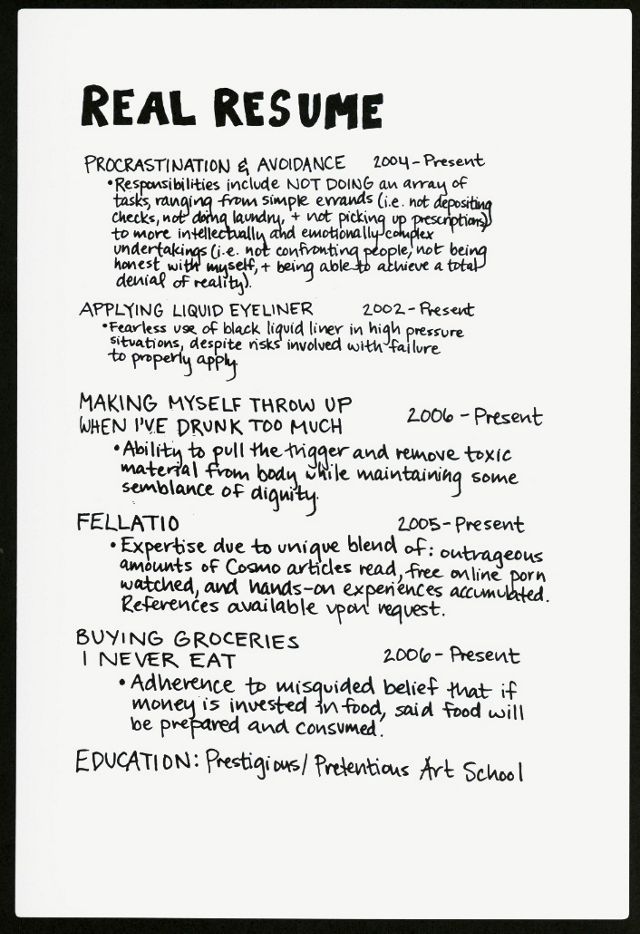 REAL RESUME
PROCRASTINATION & AVOIDANCE 2004-Present
•Responsibilities include NOT DOING an array of
tasks, ranging from simple errands (i.e. not depositing
checks, not doing laundry, + not picking up prescriptions)
to more intellectually and emotionally complex
undertakings (i.e. not confronting people, not being
honest with myself, + being able to achieve a total
denial of reality).
APPLYING LIQUID EYELINER 2002-Present
•Fearless use of black liquid liner in high pressure
situations, despite risks involved with failure
to properly apply
MAKING MYSELF THROW UP
WHEN I'VE DRUNK TOO MUCH 2006-Present
•Ability to pull the trigger and remove toxic
material from body while maintaining some
semblance of dignity.
FELLATIO 2005-Present
•Expertise due to unique blend of: outrageous
amounts of Cosmo articles read, free online porn
watched, and hands-on experiences accumulated.
References available upon request.
BUYING GROCERIES
I NEVER EAT 2006-Present
•Adherence to misguided belief that if
money is invested in food, said food will
be prepared and consumed.
EDUCATION: Prestigious/Pretentious Art School